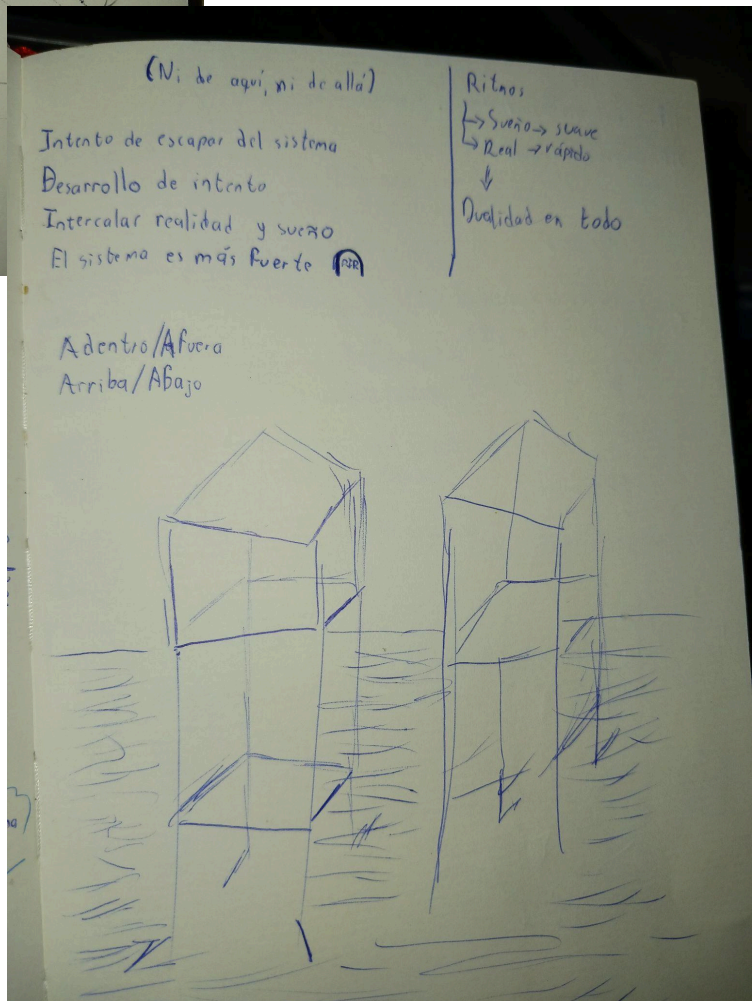 (Ni de aquí, ni de allá)
Intento de escapar del sistema
Desarrollo de intento
Intercalar realidad y sueño
El sistema es más fuerte
Adentro/Afuera
Arriba/Abajo
Ritmos
→ Sueño → suave
→ Real → rápido
↓
Dualidad en todo